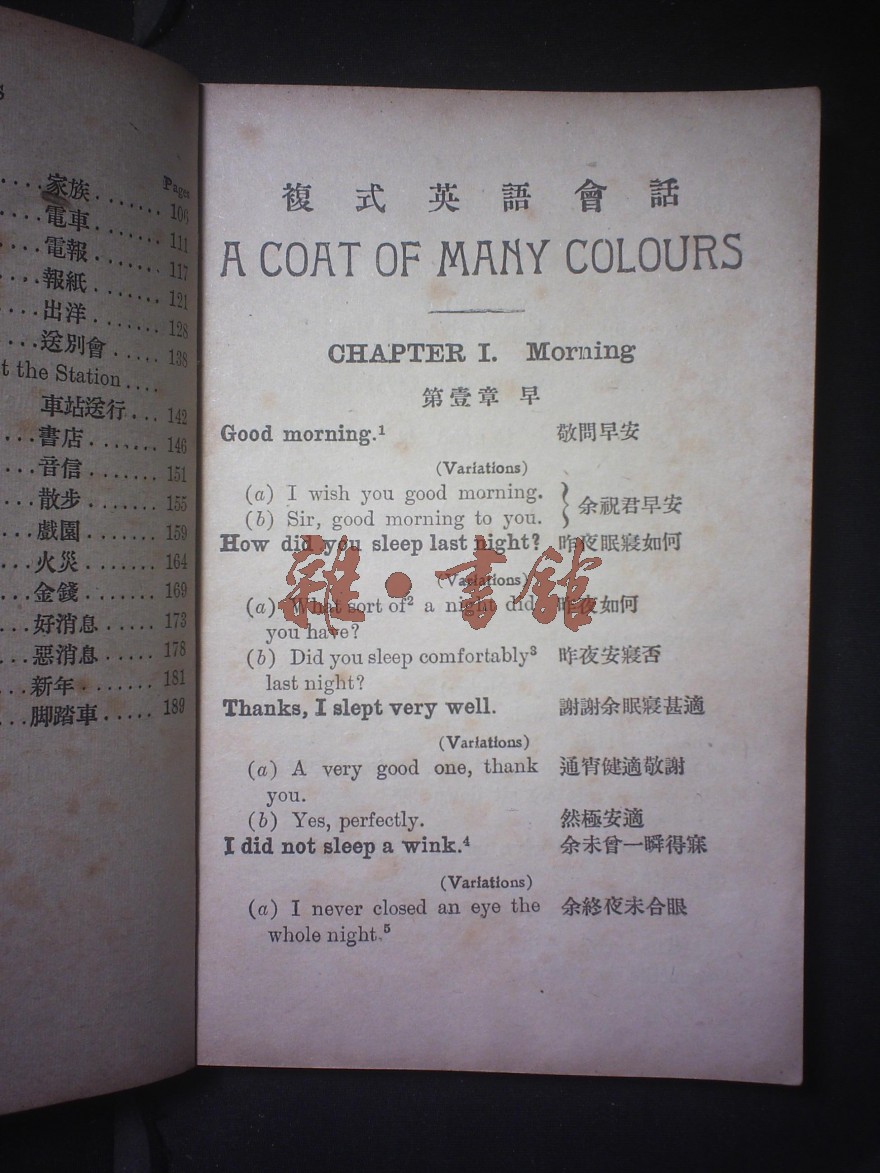 S
Pages
....家族....... 106
....電車....... 111
....電報....... 117
....報紙....... 121
出洋....... 128
送別會..... 138
t the Station....
車站送行... 142
....書店....... 146
....音信....... 151
....散步....... 155
....戲園....... 159
....火災....... 164
....金錢....... 169
...好消息..... 173
...惡消息..... 178
...新年....... 181
...脚踏車..... 189
複式英語會話
A COAT OF MANY COLOURS
CHAPTER I. Morning
第壹章 早
Good morning.¹ 敬問早安
(Variations)
(a) I wish you good morning.
(b) Sir, good morning to you. 余祝君早安
How did you sleep last night? 昨夜眠寢如何
(Variations)
(a) What sort of² a night did 昨夜如何
you have?
(b) Did you sleep comfortably³ 昨夜安寢否
last night?
Thanks, I slept very well. 謝謝余眠寢甚適
(Variations)
(a) A very good one, thank 通宵健適敬謝
you.
(b) Yes, perfectly. 然極安適
I did not sleep a wink.⁴ 余未曾一瞬得寐
(Variations)
(a) I never closed an eye the 余終夜未合眼
whole night.⁵
雜·書館